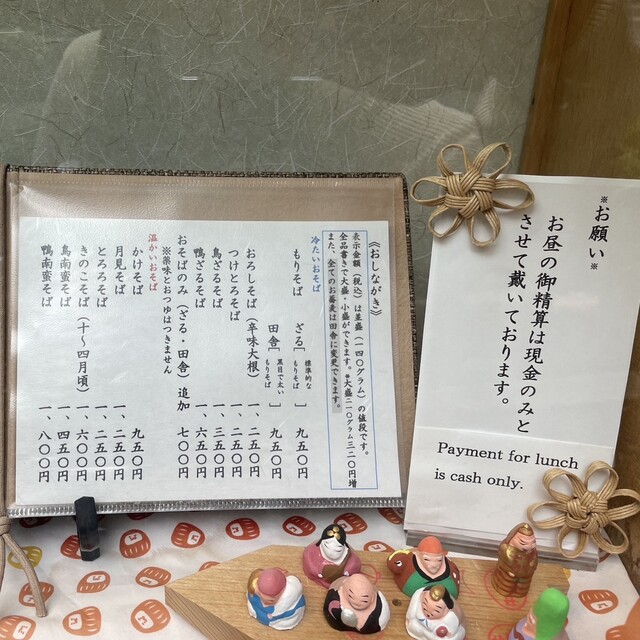 《おしながき》
表示金額(税込)は並盛(一四〇グラム)の値段です。
全品書きで大盛・小盛ができます。*大盛二一〇グラム三二〇円増
また、全てのお蕎麦は田舎に変更できます。
冷たいおそば
もりそば ざる[標準的なもりそば] 九五〇円
田舎[黒目で太いもりそば] 九五〇円
おろしそば(辛味大根) 一、二五〇円
つけとろそば 一、二五〇円
鳥ざるそば 一、三五〇円
鴨ざるそば 一、六五〇円
おそばのみ(ざる・田舎)追加 七〇〇円
※薬味とおつゆはつきません
温かいおそば
かけそば 九五〇円
月見そば 一、二五〇円
とろろそば 一、二五〇円
きのこそば(十〜四月頃) 一、六〇〇円
鳥南蛮そば 一、四五〇円
鴨南蛮そば 一、八〇〇円
※お願い※
お昼の御精算は現金のみと
させて戴いております。
Payment for lunch
is cash only.